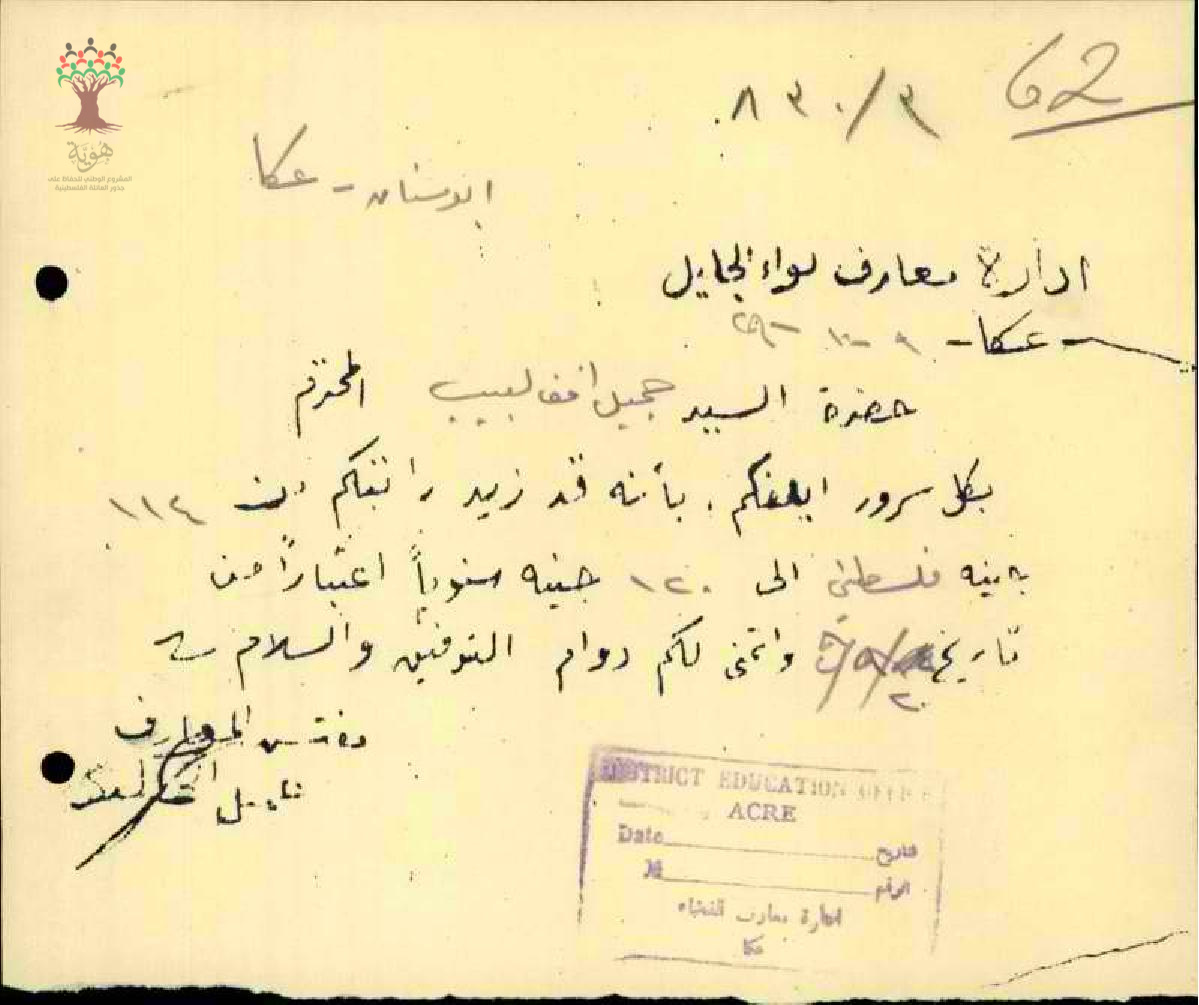 62
٨٣٠/٣
هُوِيَّة
المشروع الوطني للحفاظ على
جذور العائلة الفلسطينية
ابوسنان - عكا
ادارة معارف لواء الجليل
- عكا -
حضرة السيد جميل لبيب المحترم
بكل سرور ابلغكم بأنه قد زيد راتبكم من ١١٤
جنيه فلسطيني الى ١٢٠ جنيه سنوياً اعتباراً من
تاريخ واتمنى لكم دوام التوفيق والسلام
مفتش المعارف
DISTRICT EDUCATION OFFICE
ACRE
Date تاريخ
№ الرقم
ادارة معارف القضاء
عكا